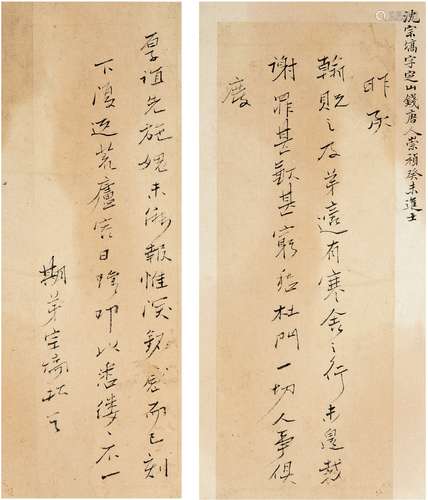 沈宗塙字定山錢唐人崇禎癸未進士
昨承
翰貺之及弟適有寒舍之行未遑裁
謝罪甚歉甚窮愁杜門一切人事俱
廢
厚誼先施媿未報惟深銘感而已刻
下復返荒廬容日叩以悉縷不一
期弟宗塙